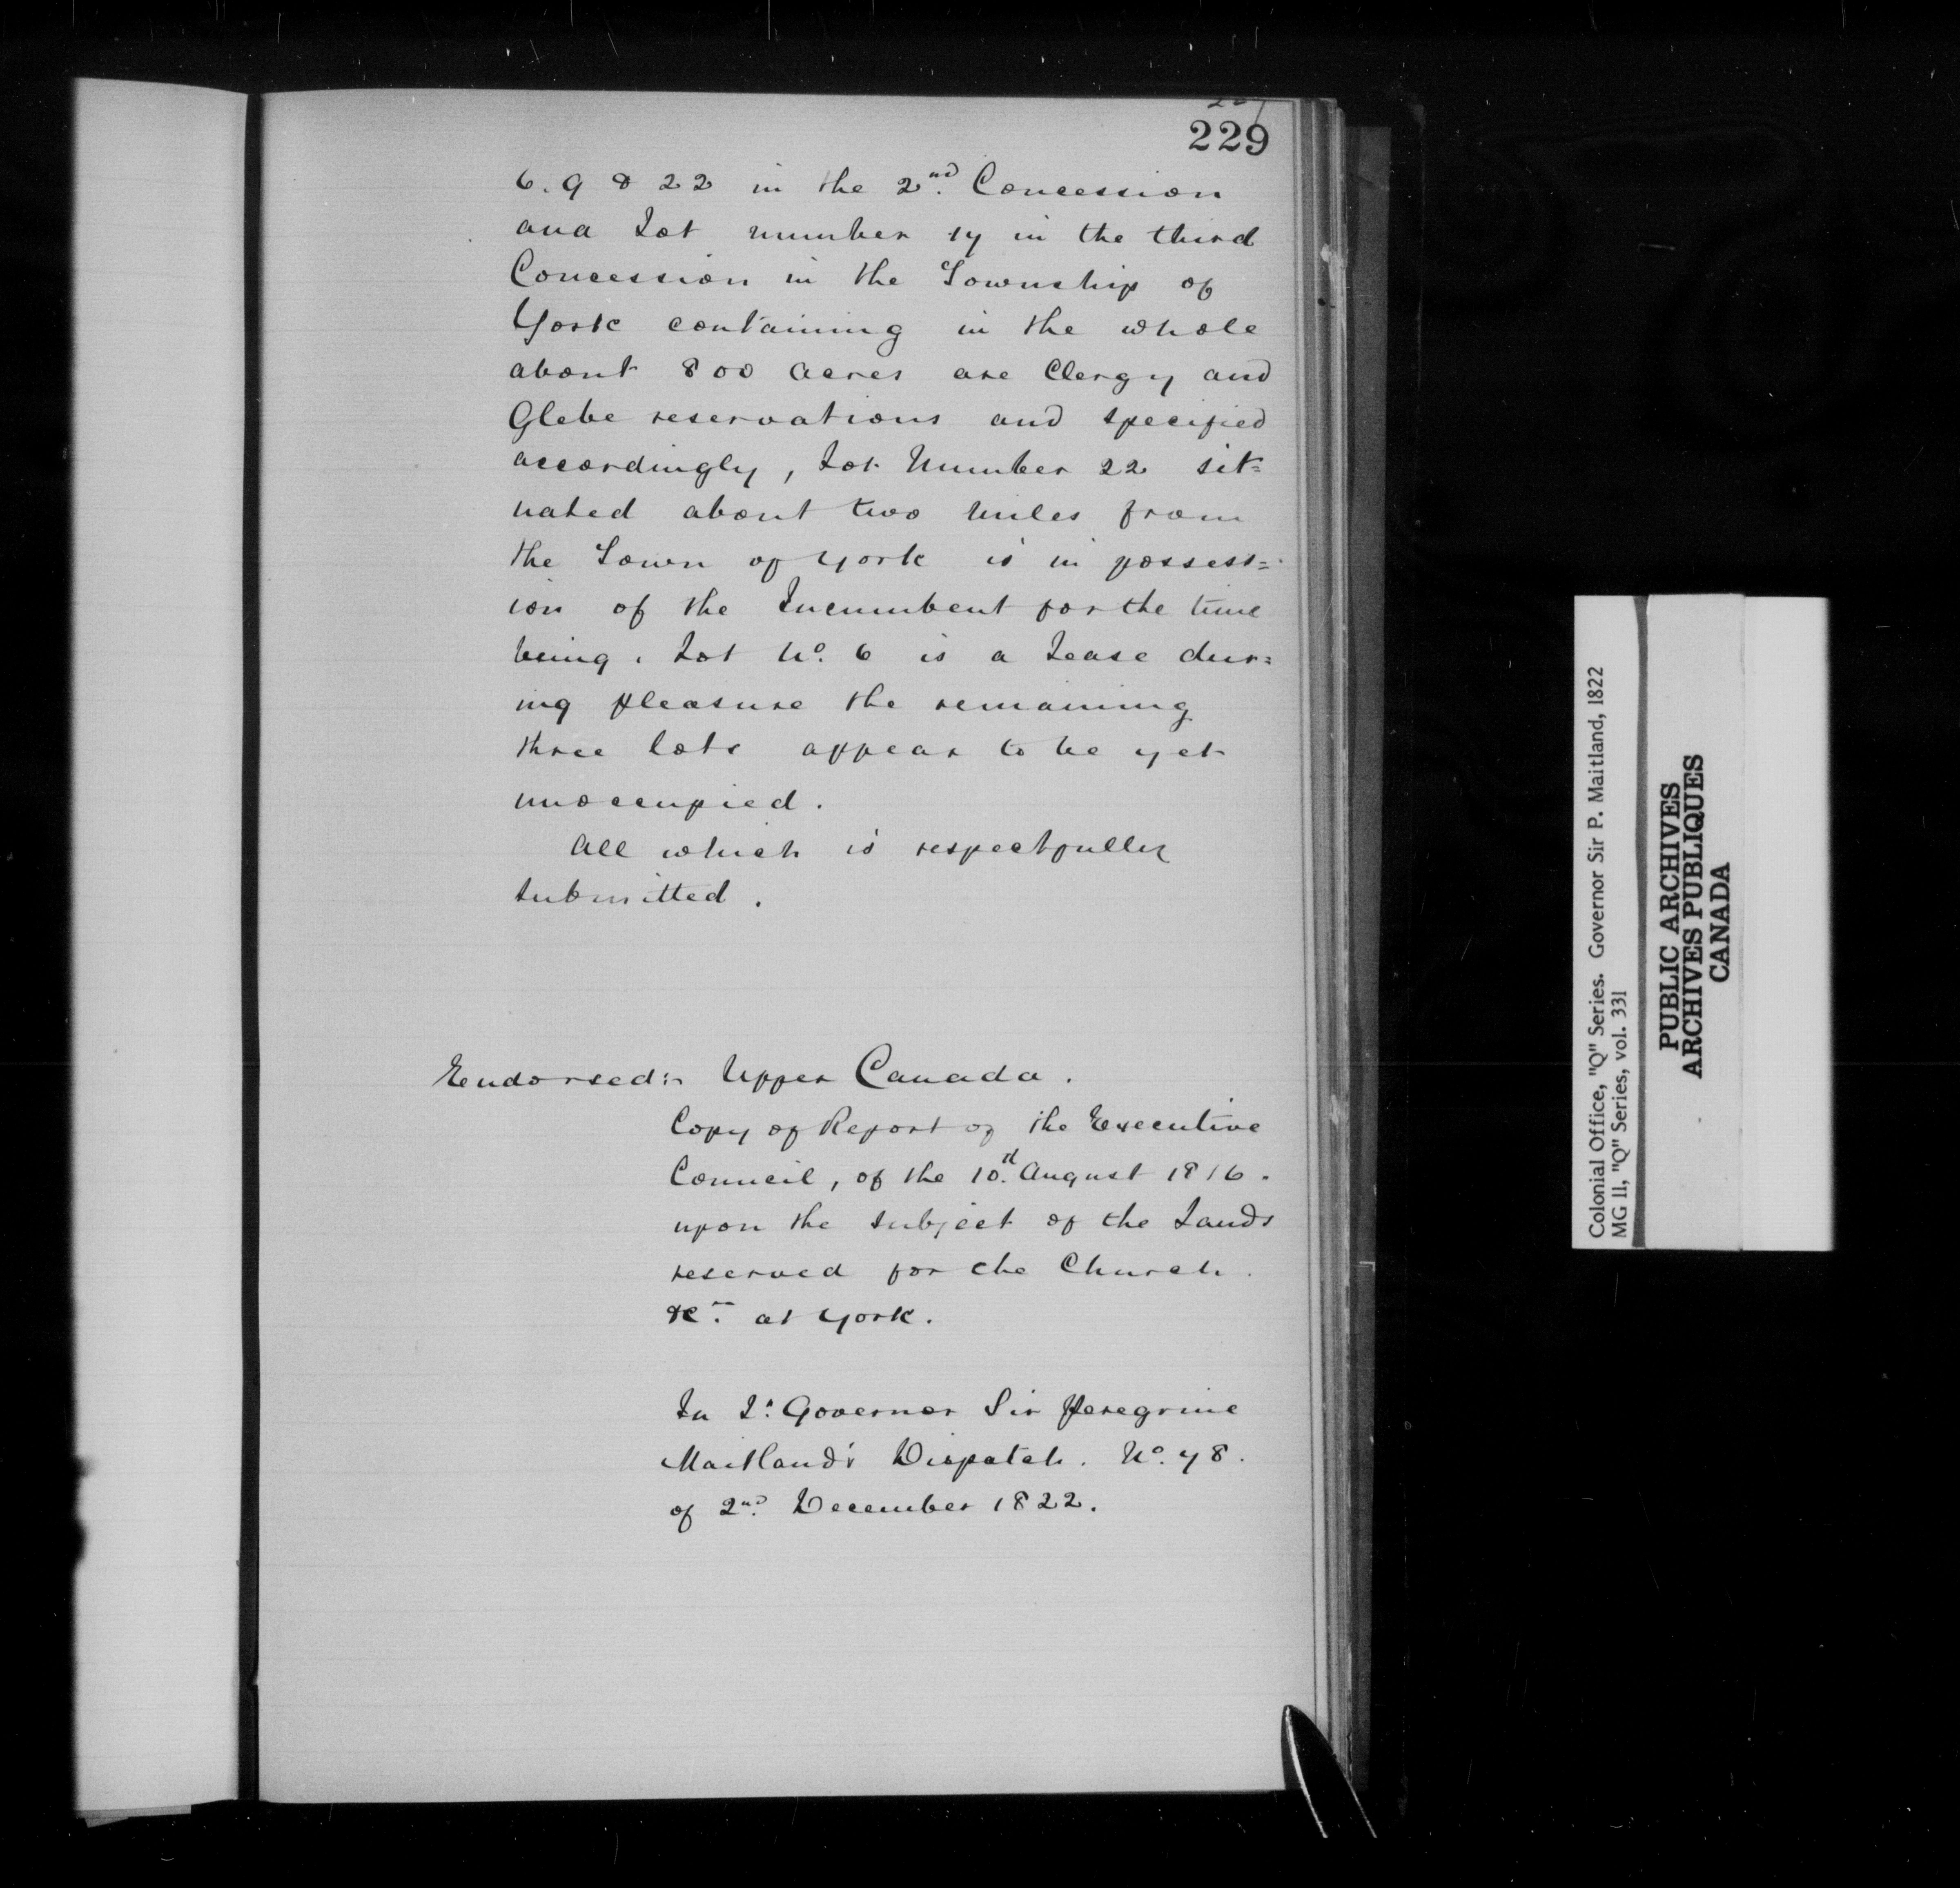 229
6. 9 & 22 in the 2nd. Concession
and Lot number 17 in the third
Concession in the Township of
York containing in the whole
about 800 acres are Clergy and
Glebe reservations and specified
accordingly, Lot Number 22 sit=
uated about two miles from
the Town of York is in possess=
ion of the Incumbent for the time
being. Lot No. 6 is a Lease dur=
ing pleasure the remaining
three lots appear to be yet
unoccupied.
All which is respectfully
submitted.
Endorsed:- Upper Canada.
Copy of Report of the Executive
Council, of the 10.th August 1816.
upon the subject of the Lands
reserved for the Church.
&c. at York.
In Lt. Governor Sir Peregrine
Maitland's Dispatch. No. 78.
of 2nd. December 1822.
Colonial Office, "Q" Series. Governor Sir P. Maitland, 1822
MG 11, "Q" Series, vol. 331
PUBLIC ARCHIVES
ARCHIVES PUBLIQUES
CANADA